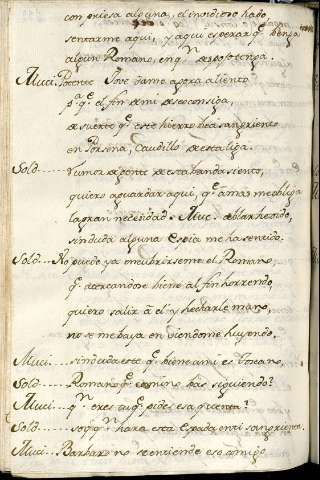 con priesa alguna, el invidioso hado
sentarme aqui, y aqui esperar q̃ benga
algun Romano, en qn
Muci. Potente Jove dame agora aliento
pa q̃ el fin de mi deseo consiga,
de suerte q̃ este hierro bea sangriento
en Porsena, Caudillo de esta liga.
Sold.... Rumor de gente de esta banda siento,
quiero aguardar aqui, q̃ a mas me obliga
la gran necesidad. Muc.
sin duda alguna Espia me ha sentido.
Sold.... No puede ya encubrirseme el Romano,
q̃ acercandose biene al fin horrendo,
quiero salir a el y hecharle mano,
no se me baya en biendome huyendo.
Muci.... sin duda este q̃ biene a mi es Toscano,
Sold.... Romano q̃ camino bas siguiendo?
Muci.... qn eres tu q̃ pides esa quenta?
Sold.... soy qn hara esta Espada en ti sangrienta.
Muci.... Barbaro no te entiendo eso amigo